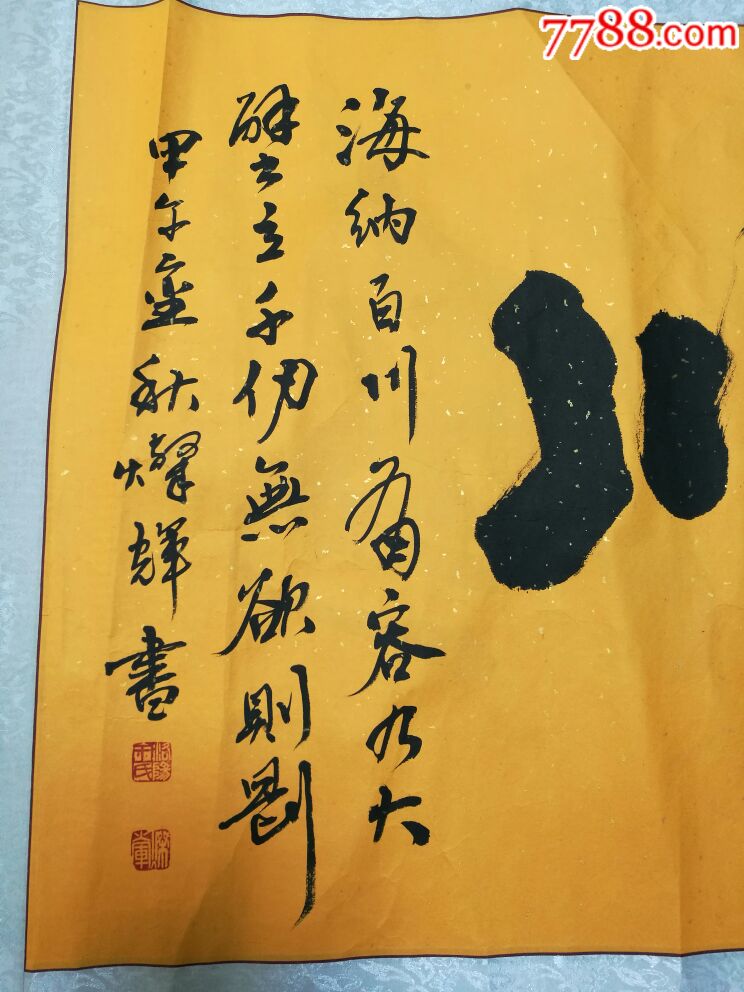 7788.com
海納百川有容乃大
壁立千仞無欲則剛
甲午金秋燦輝書